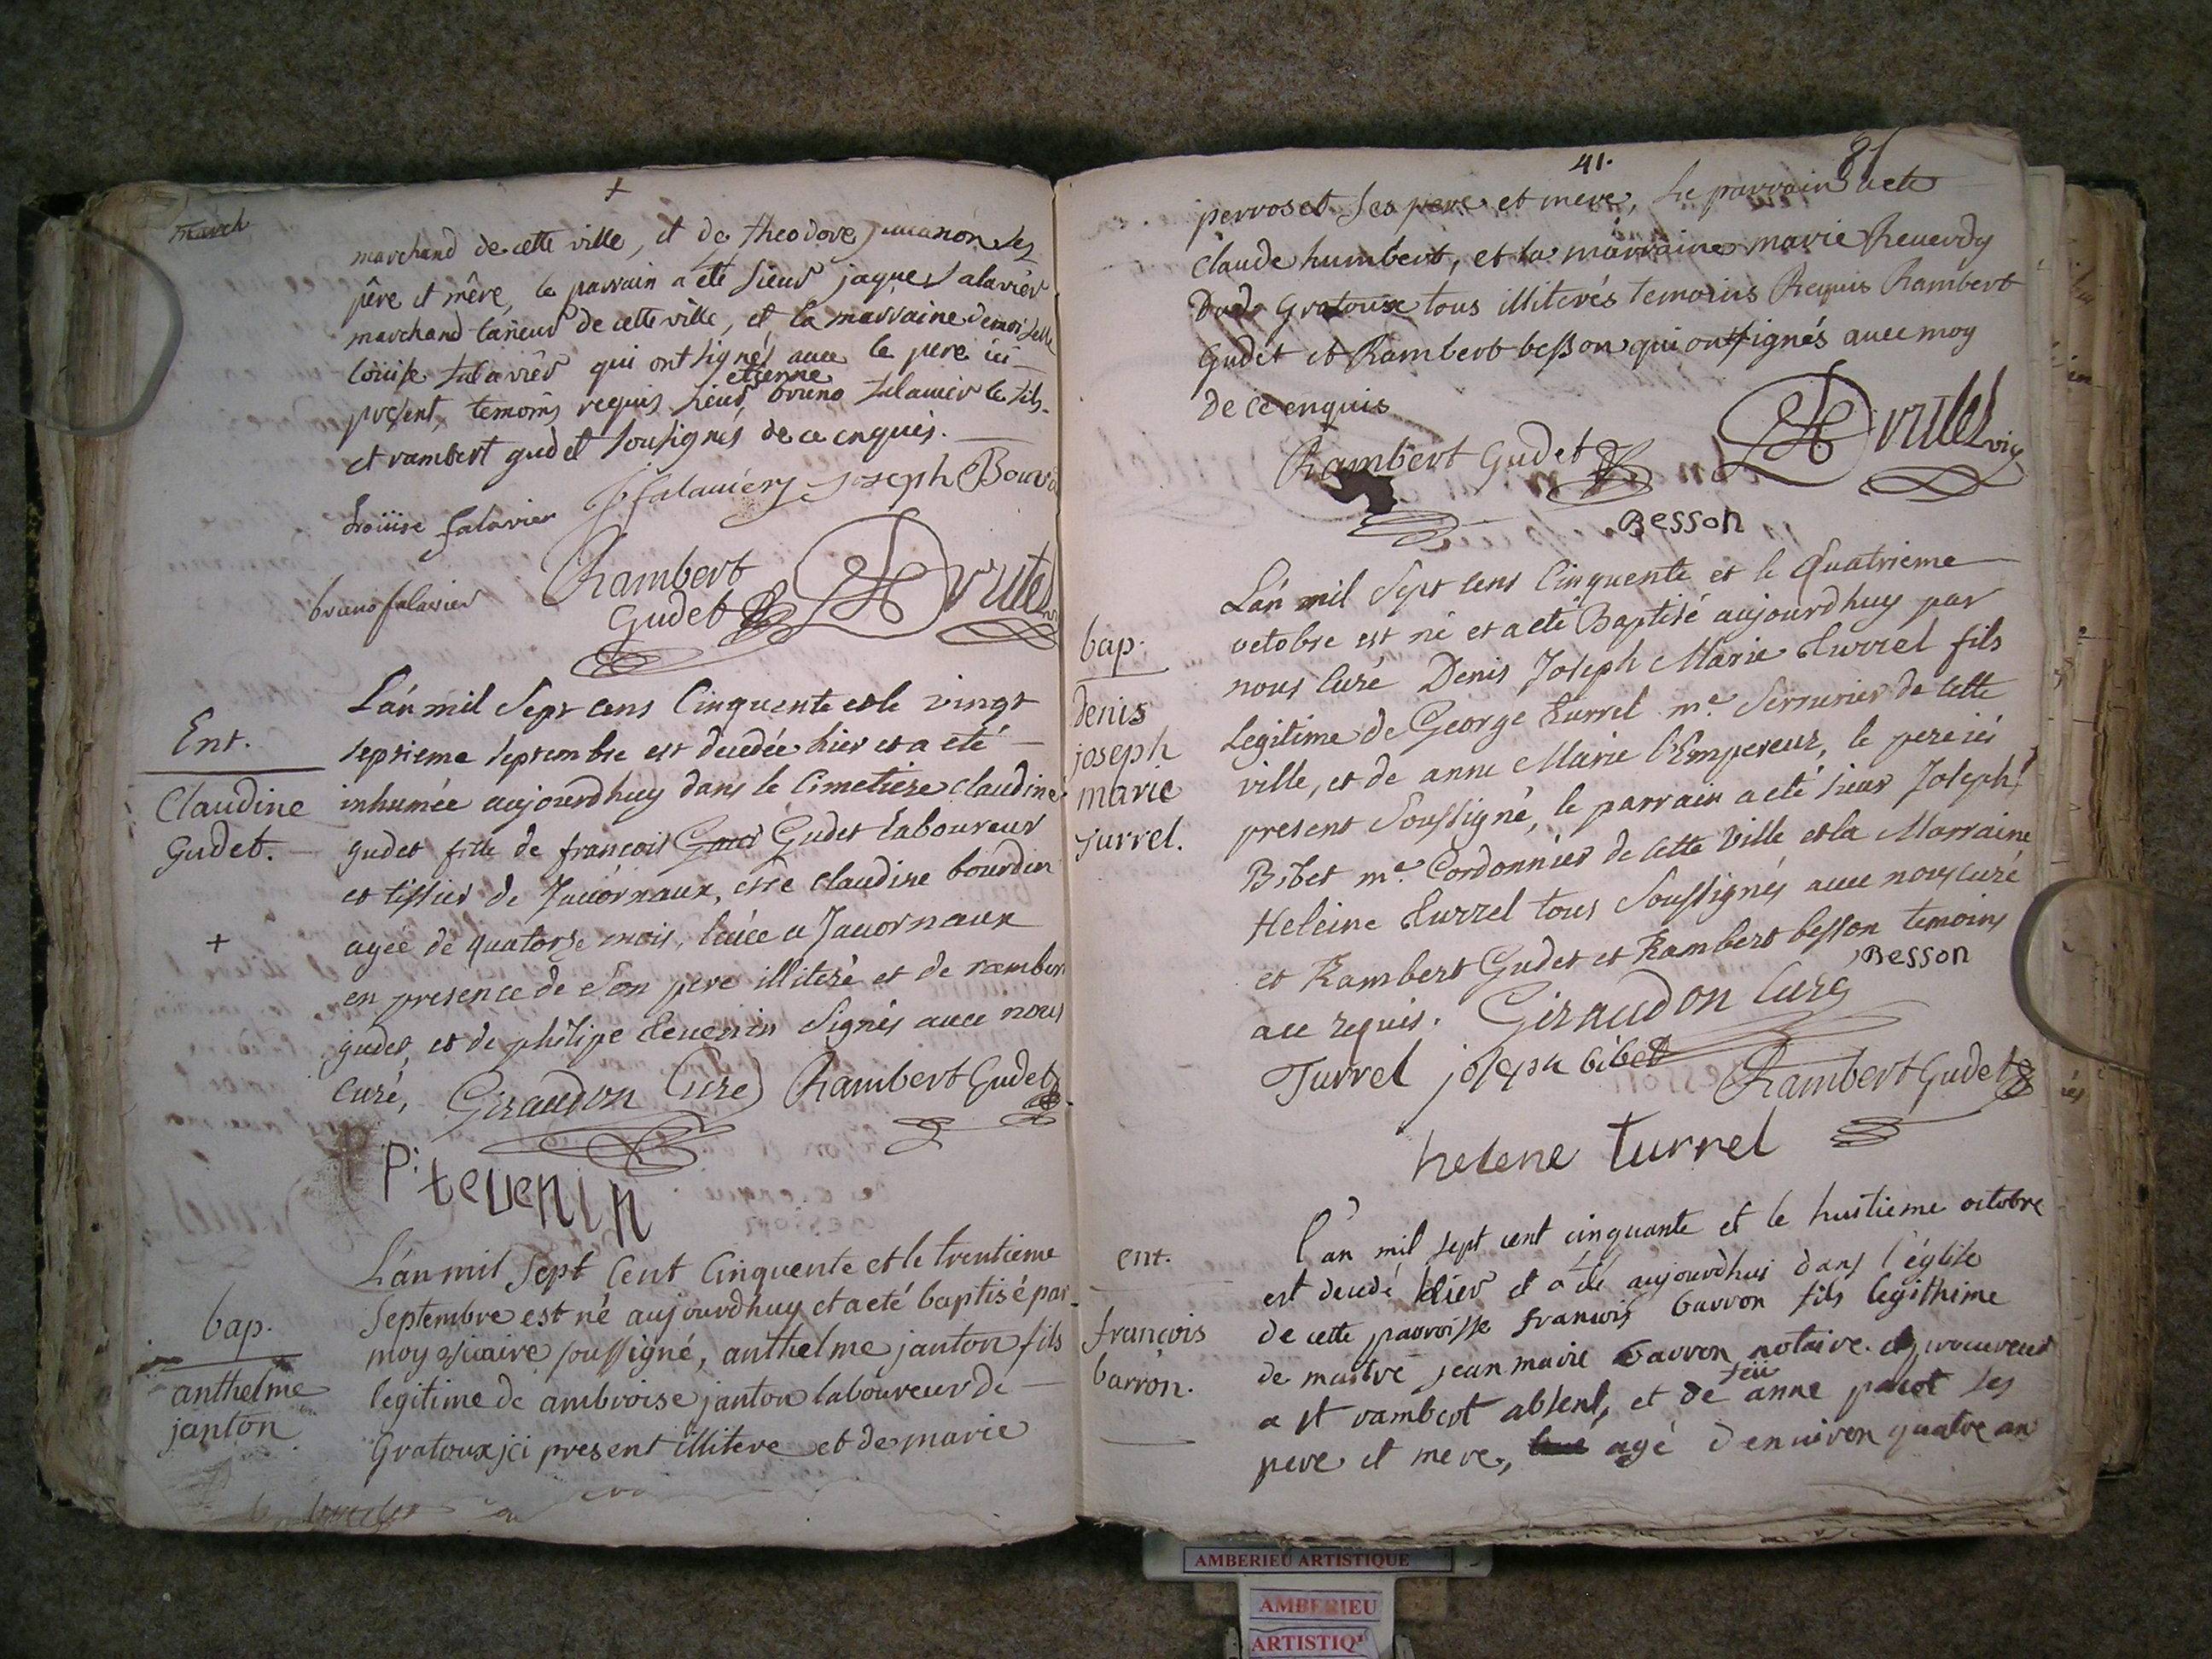 march
+
marchand de cette ville, et de theodore jumanon ses
pêre et mêre, le parrain a eté sieur jaques falavier
marchand taneur de cette ville, et la marraine demoiselle
loüise falavier qui ont signés avec le pere ici
present, temoins requis sieur etienne bruno falavier le fils
et rambert gudet sousignes de ce enquis.
Loüise falavier falavier joseph Bouv
bruno falavier Rambert
Gudet
Ent.
Claudine
Gudet.
+
L'an mil Sept cens Cinquente et le vingt
septieme septembre est decedée hier et a eté
inhumée aujourdhuy dans le Cimetiere claudine
gudet fille de francois Gudet Laboureur
et tissier de Javornaux, et de claudine bourdin
agée de quatorze mois, levée a Javornaux
en presence de Son pere illiteré et de rambert
gudet, et de philipe tevenin Signés avec nous
Curé, Giraudon Curé Rambert Gudet
P. tevenin
bap.
anthelme
janton
L'an mil Sept Cent Cinquente et le trentieme
Septembre est né aujourdhuy et a eté baptisé par
moy vicaire soussigné, anthelme janton fils
legitime de ambroise janton laboureur de
Gratoux ici present illitere et de marie
41.
81
perroset Ses pere et mere, Le parrain a ete
Claude humbert, et la marraine marie Reverdy
Dudt Gratoux tous illiterés temoins Requis Rambert
Gudet et Rambert besson qui ont signés avec moy
de ce enquis
Rambert Gudet
Besson
bap.
denis
joseph
marie
turrel.
L'an mil Sept cens Cinquente et le Quatrieme
octobre est né et a eté Baptisé aujourdhuy par
nous Curé Denis Joseph Marie Turrel fils
Legitime de George Turrel me. Serrurier de Cette
ville, et de anne Marie l'Empereur, le pere ici
present Soussigné, le parrain a eté sieur Joseph
Bibet me. Cordonnier de Cette Ville et la Marraine
Heleine Turrel tous Soussignés avec nous curé
et Rambert Gudet et Rambert besson temoins
a ce requis. Giraudon Curé Besson
Turrel joseph bibet Rambert Gudet
helene turrel
ent.
francois
barron.
l'an mil sept cent cinquante et le huitieme octobre
est decedé hier et a eté aujourdhui dans l'église
de cette parroisse francois barron fils legithime
de maitre jean marie barron notaire et procureur
a st rambert absent, et de feüe anne pacot ses
pere et mere, agé d'environ quatre an
AMBERIEU ARTISTIQUE
AMBERIEU
ARTISTIQ